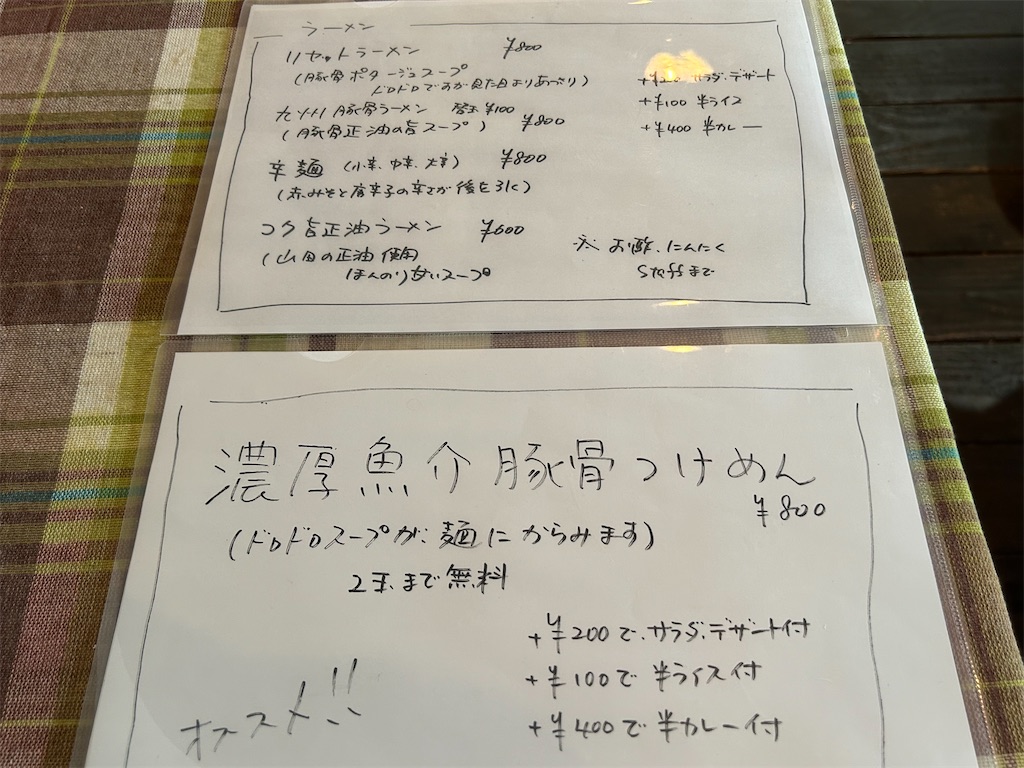 ラーメン
リセットラーメン ¥800
(豚骨ポタージュスープ
ドロドロですが見た目よりあっさり)
九州豚骨ラーメン 替玉¥100
(豚骨正油の旨スープ) ¥800
辛麺 (小辛、中辛、大辛) ¥800
(赤みそと唐辛子の辛さが後を引く)
コク旨正油ラーメン ¥600
(山田の正油使用
ほんのり甘いスープ)
+¥200 サラダ、デザート
+¥100 半ライス
+¥400 半カレー
※ お酢、にんにく
Staffまで
濃厚魚介豚骨つけめん
¥800
(ドロドロスープが、麺にからみます)
2玉まで無料
+¥200で、サラダ、デザート付
+¥100で 半ライス付
+¥400で 半カレー付
オススメ!!